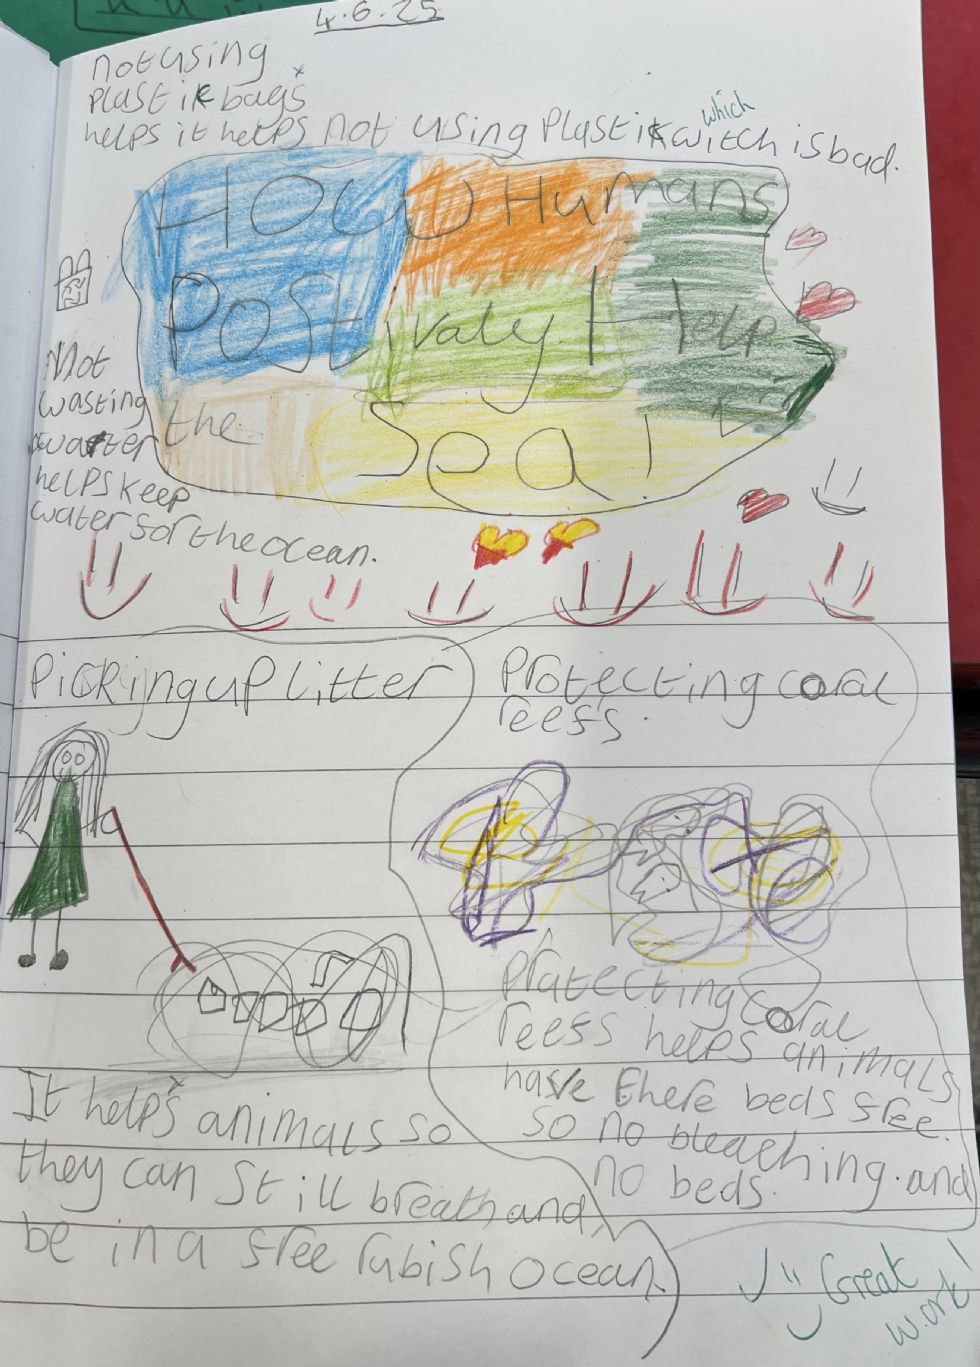 4.6.25
not using
plastik bags
helps it helps not using plastik witch is bad.
which
How Humans
Postivaly Help
the Sea!
Not
wasting
warter
helps keep
water for the ocean.
Picking up litter
Protecting coral
reefs.
Protecting coral
reefs helps animals
have there beds free.
so no bleaching. and
no beds.
It helps animals so
they can still breath and
be in a free rubish ocean.
Great
work!